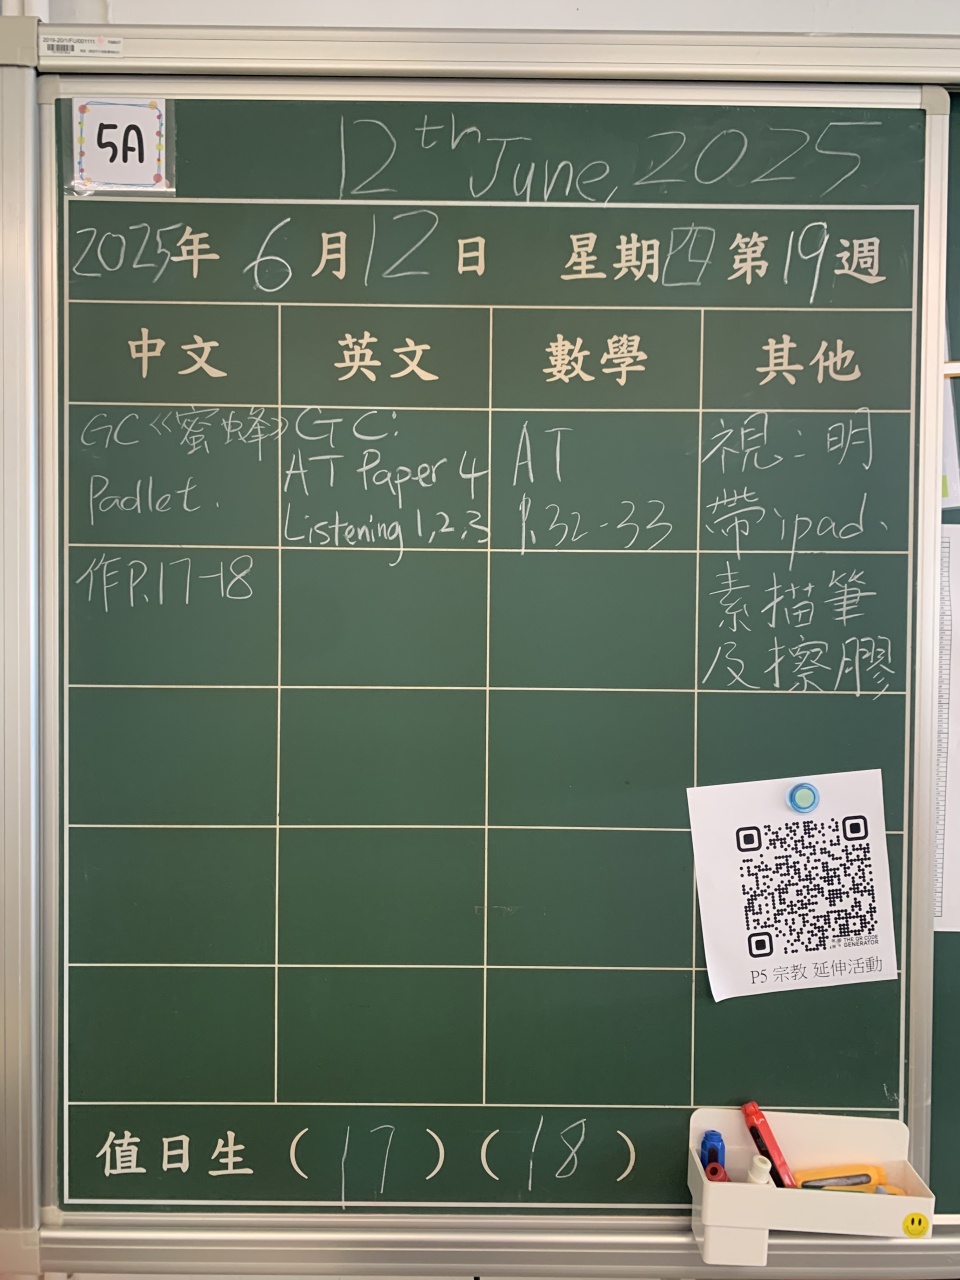 5A
12th June, 2025
2025年 6月12日 星期四 第19週
中文
英文
數學
其他
GC《蜜蜂》
Padlet.
GC:
AT Paper 4
Listening 1,2,3
AT
P.32-33
視：明
帶ipad、
作P.17-18
素描筆
及擦膠
THE QR CODE
GENERATOR
P5 宗教 延伸活動
值日生 (17) (18)